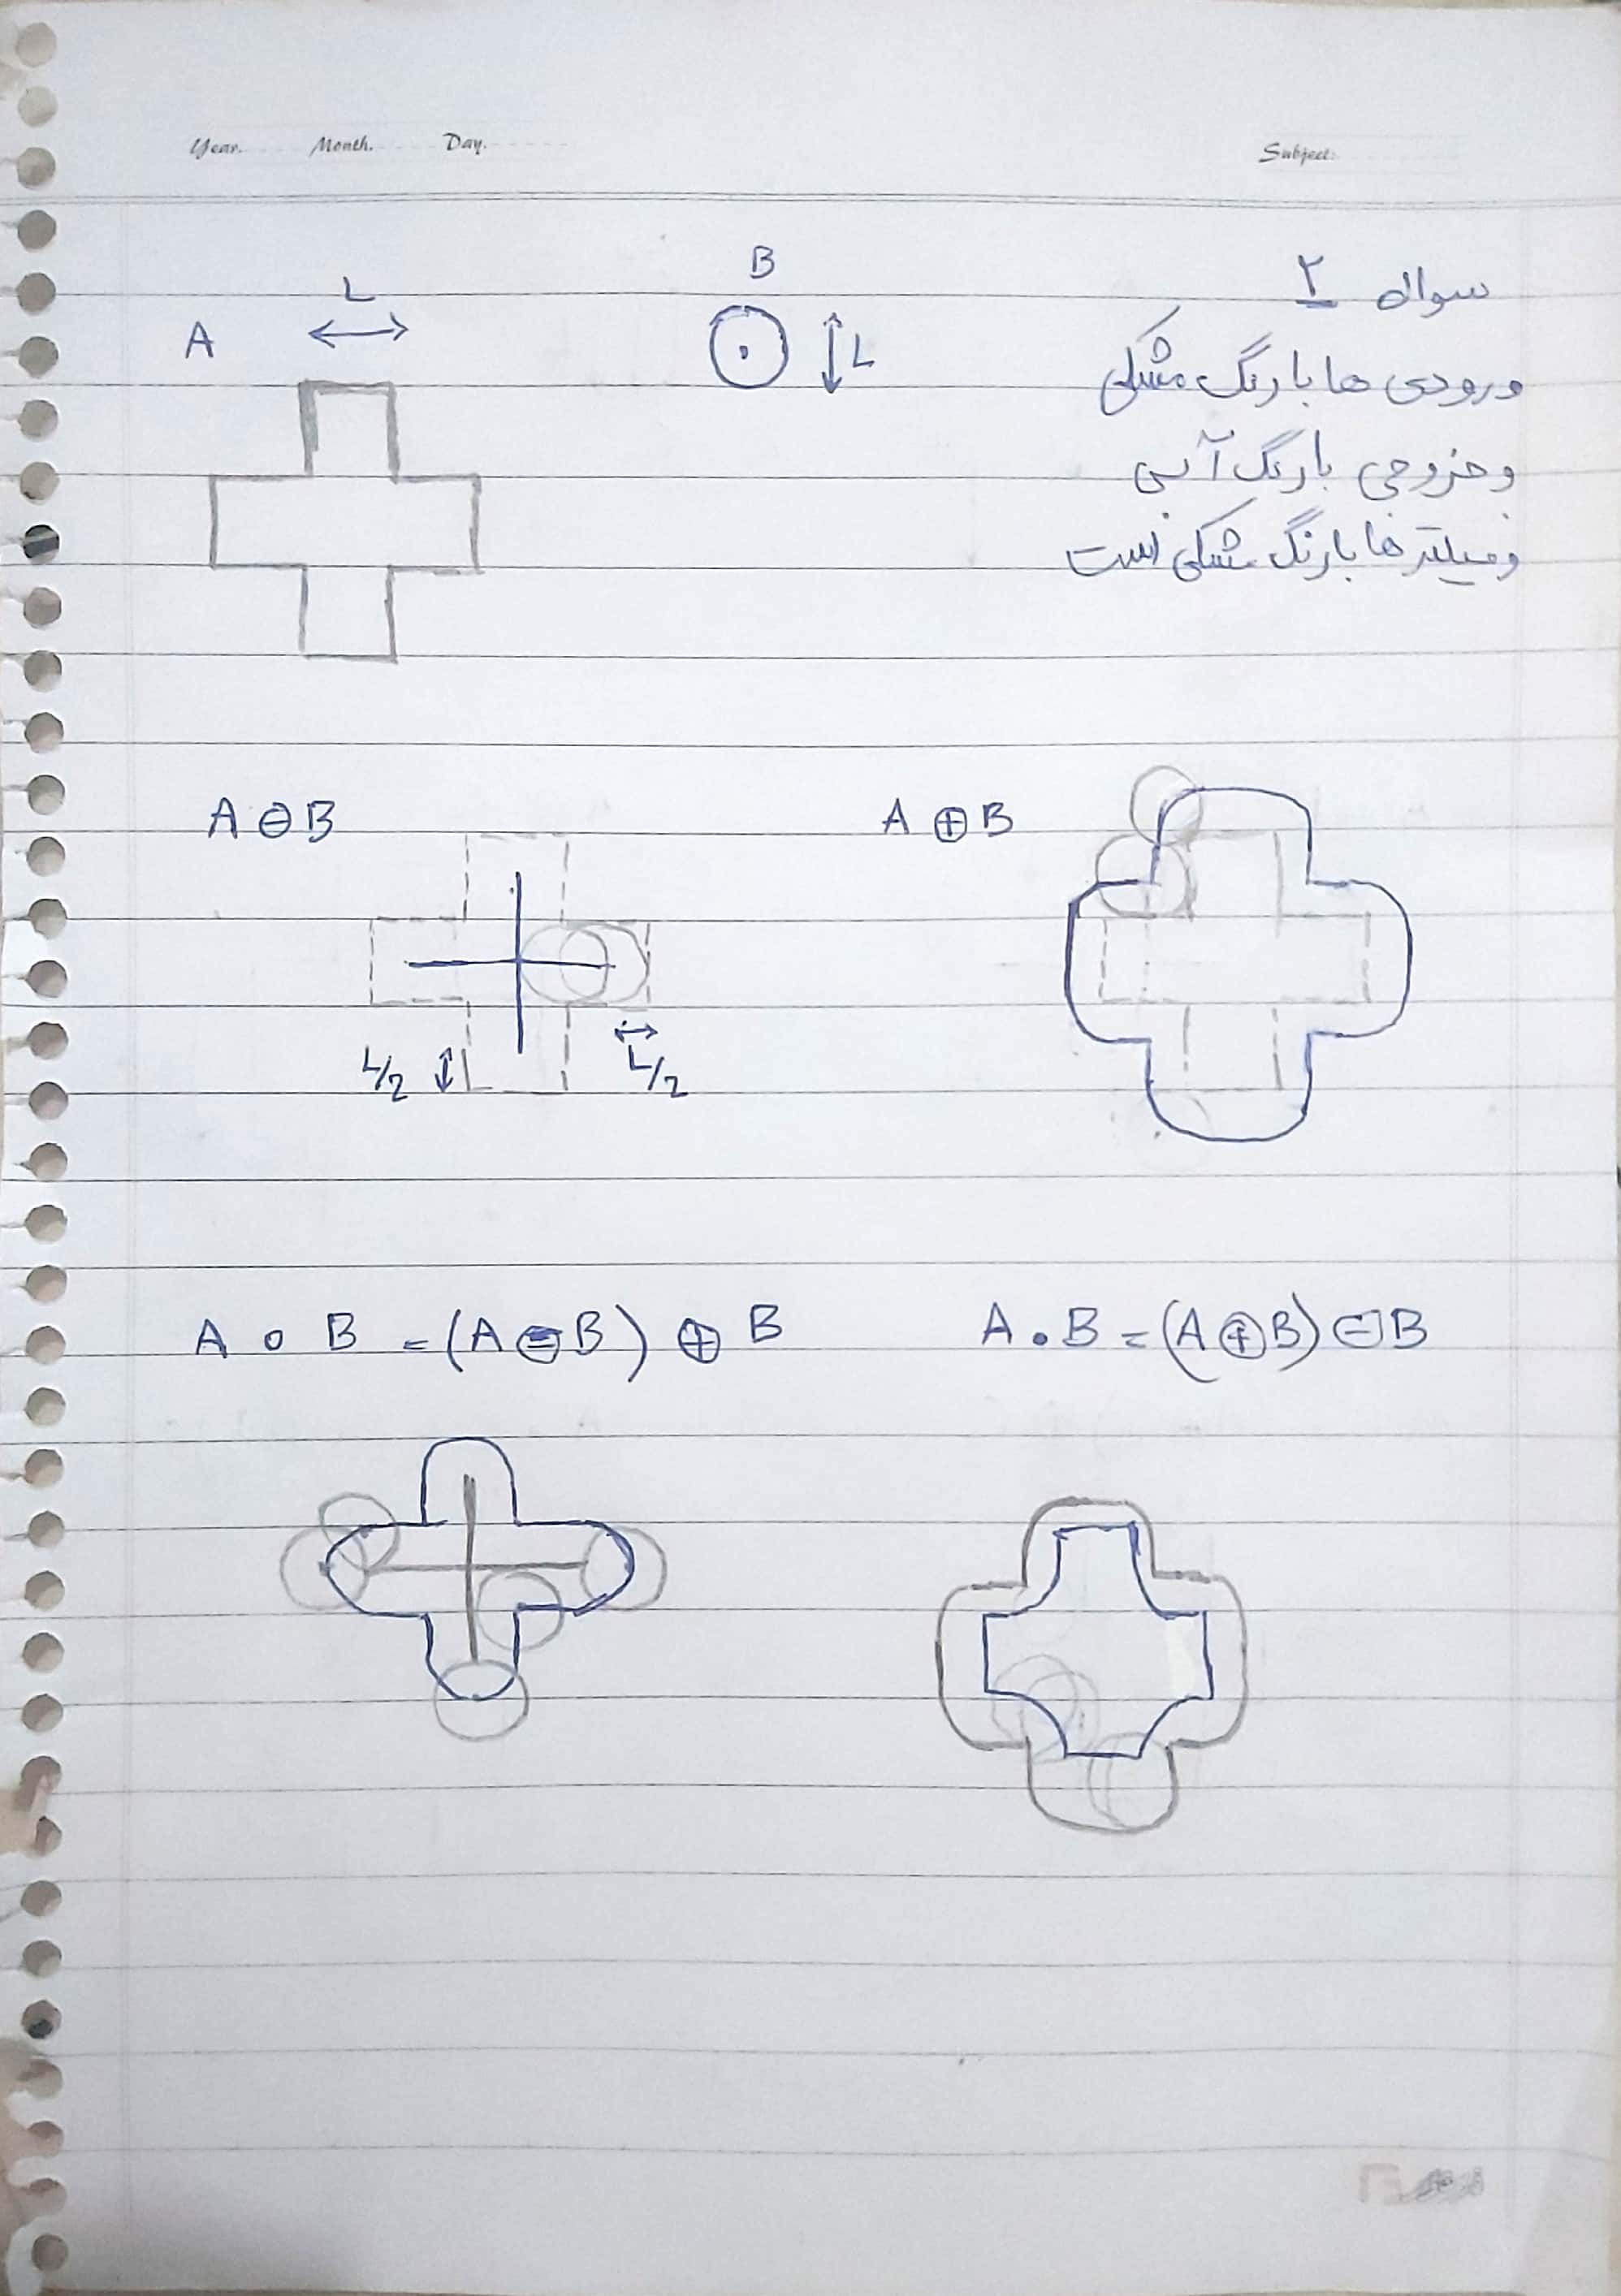 Year. Month. Day. Subject:
سوال ۲
ورودی ها با رنگ مشکی
و خروجی با رنگ آبی
و فیلتر ها با رنگ مشکی است
A L B L
A ⊖ B A ⊕ B
L/2 L/2
A ∘ B = (A ⊖ B) ⊕ B A • B = (A ⊕ B) ⊖ B